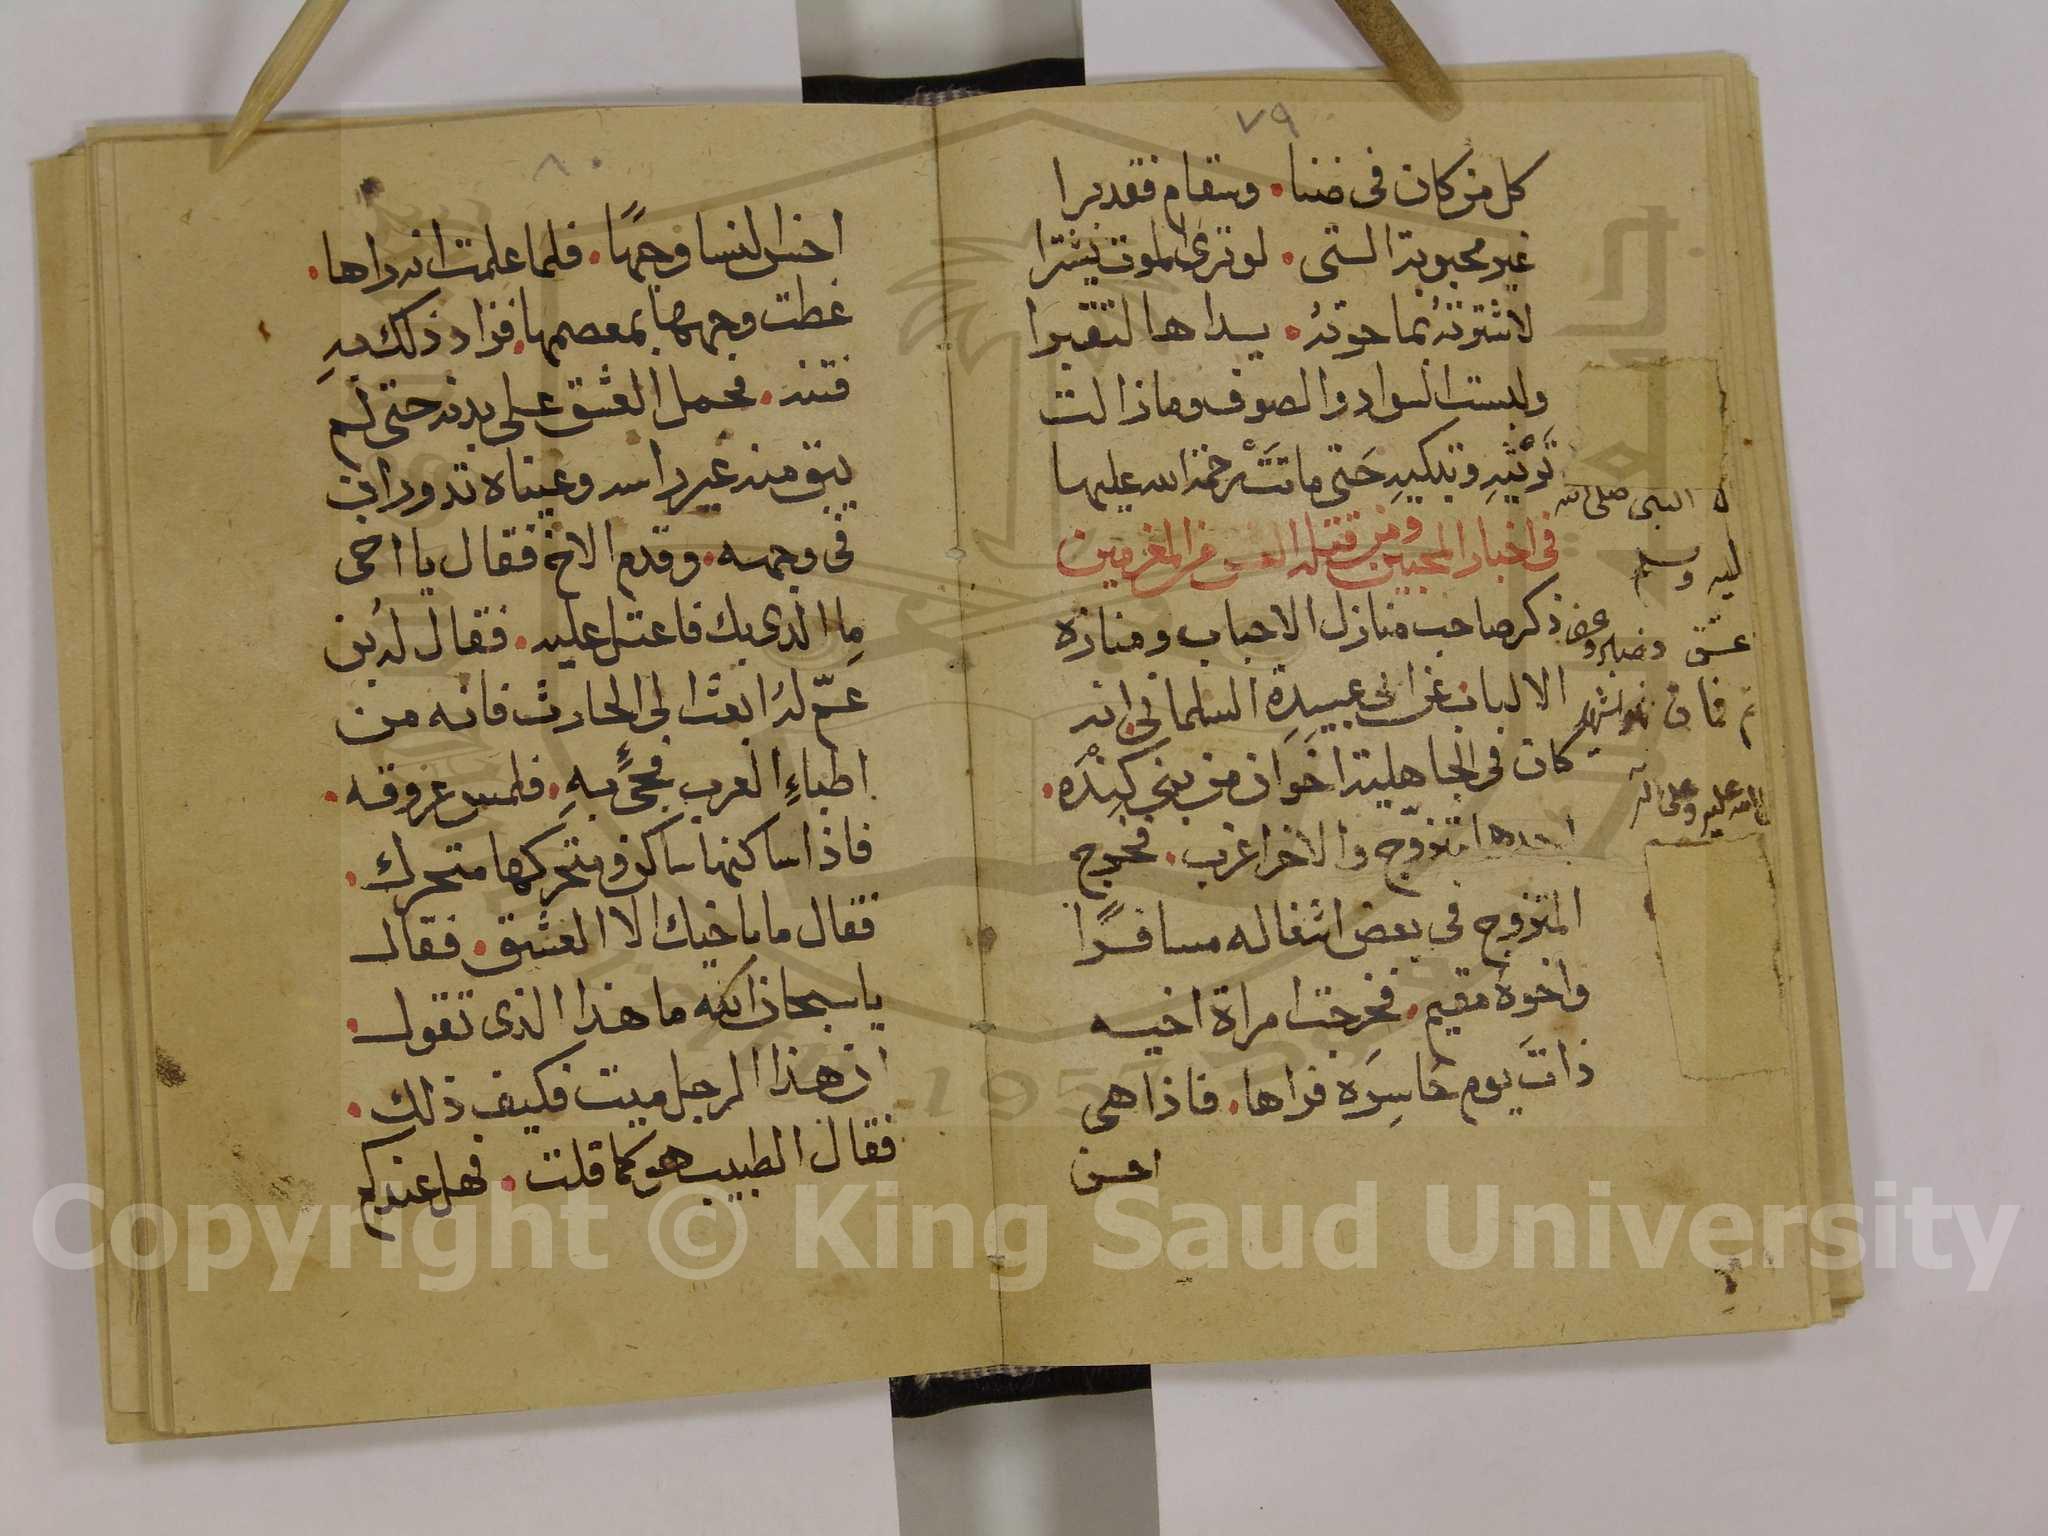 ٧٩
كل من كان فى ضنا. وسقام فقد برا
غير محبوبة الستى. لو ترى الموت يشترا
لاشترته بما حوته. يداها لتقبرا
ولبست السواد والصوف وما زالت
ترثيه وتبكيه حتى ماتت رحمة الله عليها
فى اخبار المحبين ومن قتله العشق من المغرمين
ذكر صاحب منازل الاحباب ومنازه
الالباب عن ابى عبيدة السلمانى انه
كان فى الجاهلية اخوان من بنى كنده.
احدهما متزوج والاخر اعزب. فخرج
المتزوج فى بعض اشغاله مسافرًا
واخوه مقيم. فخرجت امراة اخيه
ذات يوم حاسره فراها. فاذا هى
احسن
النبى صلى الله
ليه وسلم
عشق
فمات
الله عليه وعلى اله
٨٠
احسن النسا وجهًا. فلما علمت انه راها.
غطت وجهها بمعصمها. فزاد ذلك به
فتنه. فحمل العشق على بدنه حتى لم
يبق منه غير راسه وعيناه تدوران
فى وجهه. وقدم الاخ فقال يا اخى
ما الذى بك فاعتل عليه. فقال له بن
عمّ له ابعث الى الحارث فانه من
اطباءِ العرب فجىءَ به. فلمس عروقه.
فاذا ساكنها ساكن ومتحركها متحرك.
فقال ما باخيك الا العشق. فقال
يا سبحان الله ما هذا الذى تقول.
ان هذا الرجل ميت فكيف ذلك.
فقال الطبيب هو كما قلت. فهل عندكم
Copyright © King Saud University
1957